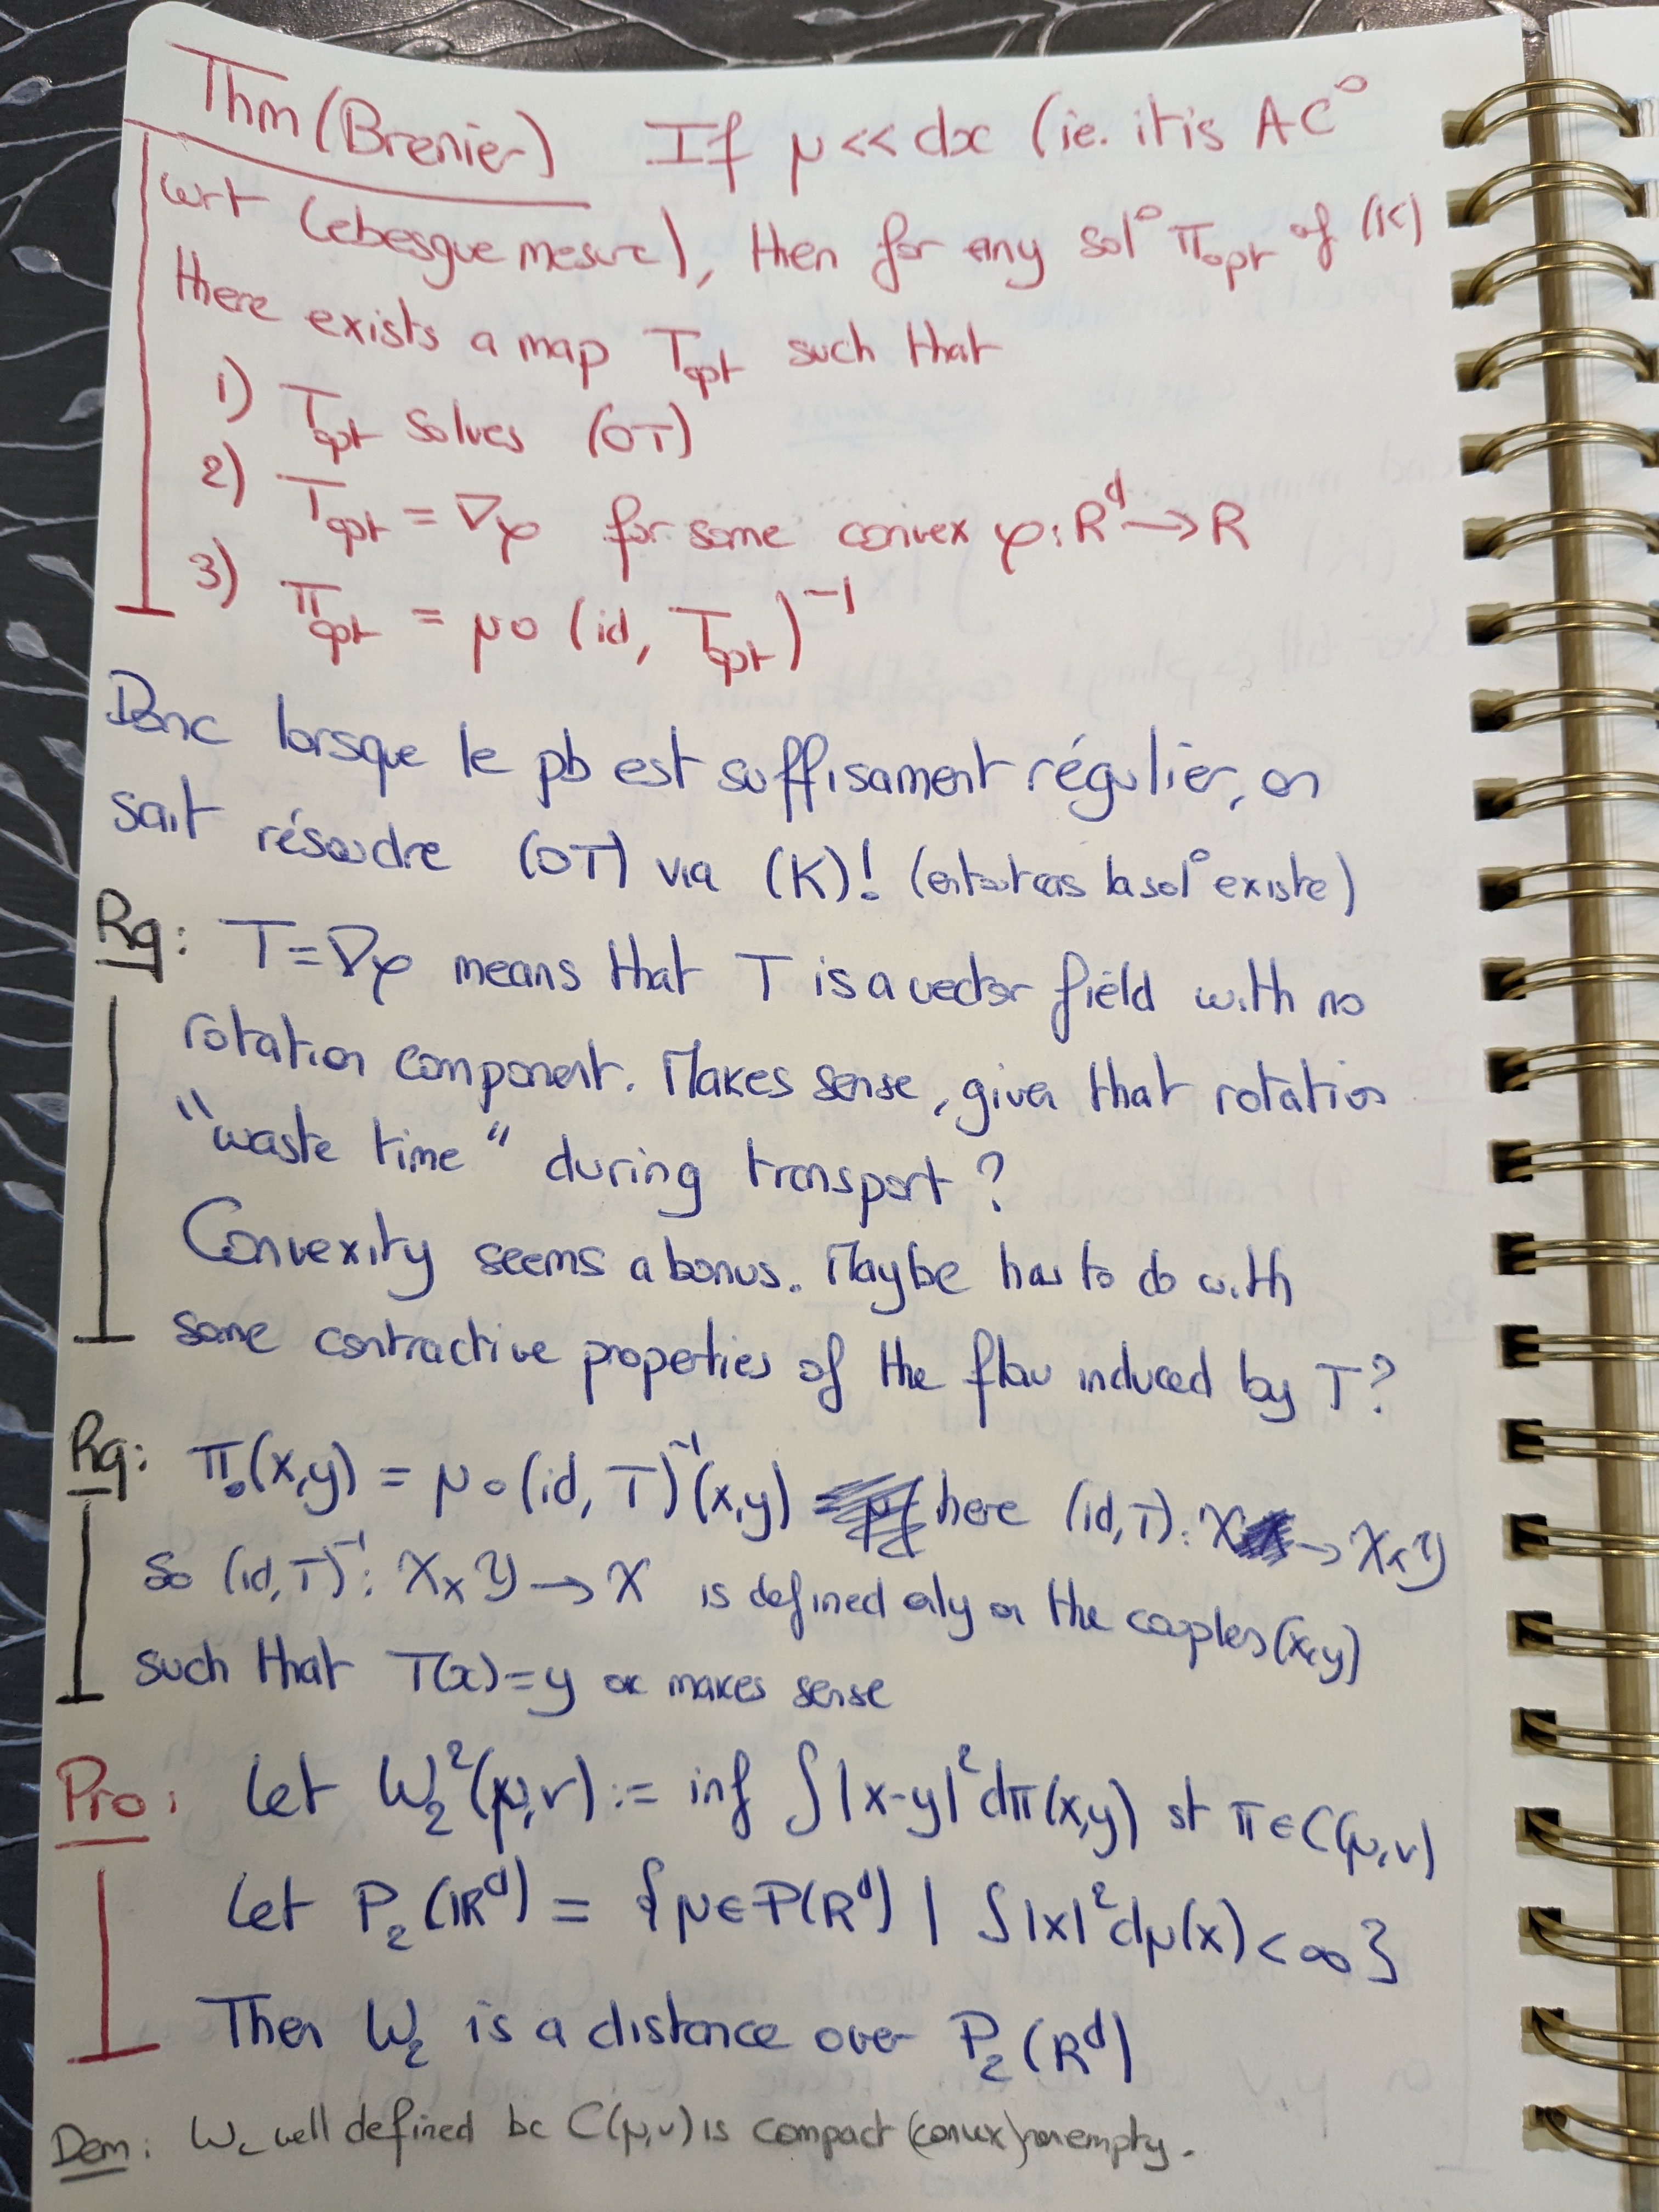 Thm (Brenier) If μ << dx (ie. it is AC°
wrt Lebesgue mesure), then for any sol° π_opt of (K)
there exists a map T_opt such that
1) T_opt solves (OT)
2) T_opt = ∇φ for some convex φ: R^d → R
3) π_opt = μ∘(id, T_opt)^-1
Donc lorsque le pb est suffisament régulier, on
sait résoudre (OT) via (K)! (en tout cas la sol° existe)
Rq: T = ∇φ means that T is a vector field with no
rotation component. Makes sense, given that rotation
"waste time" during transport?
Convexity seems a bonus. Maybe has to do with
some contractive properties of the flow induced by T?
Rq: π_0(x,y) = μ∘(id, T)^-1(x,y) here (id, T): X → X×Y
so (id, T)^-1: X×Y → X is defined only on the couples (x,y)
such that T(x)=y ok makes sense
Pro: Let W_2^2(μ,ν) := inf ∫|x-y|^2 dπ(x,y) st π∈C(μ,ν)
Let P_2(R^d) = {μ∈P(R^d) | ∫|x|^2 dμ(x) < ∞}
Then W_2 is a distance over P_2(R^d)
Dem: W_2 well defined bc C(μ,ν) is compact (convex) non empty.